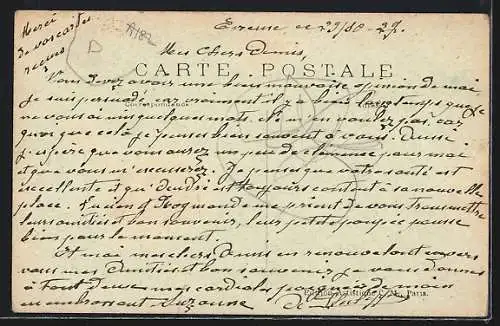 Merci
de vos cartes
reçues
D
A182
le 23/10 - 27.
Mes Chers Amis,
CARTE POSTALE
Vous devez avoir une bien mauvaise opinion de moi,
je suis persuadé car vraiment il y a bien longtemps que je
Correspondance
ne vous ai mis quelques mots. Et m'en voulez pas, car
quoique cela je pense bien souvent à vous. Aussi
j'espère que vous aurez un peu de clémence pour moi
et que vous m'excuserez. Je pense que votre santé est
excellente et qu' est toujours content à sa nouvelle
place. Lucien et me prient de vous transmettre
leurs amitiés et bon souvenir, leur petite poupée pousse
bien pour le moment.
Et moi mes chers Amis en renouvelant
vous mes amitiés et bon souvenir je vous donne
à tout deux mes cordiales poignées de main
en embrassant Suzanne
Paris.